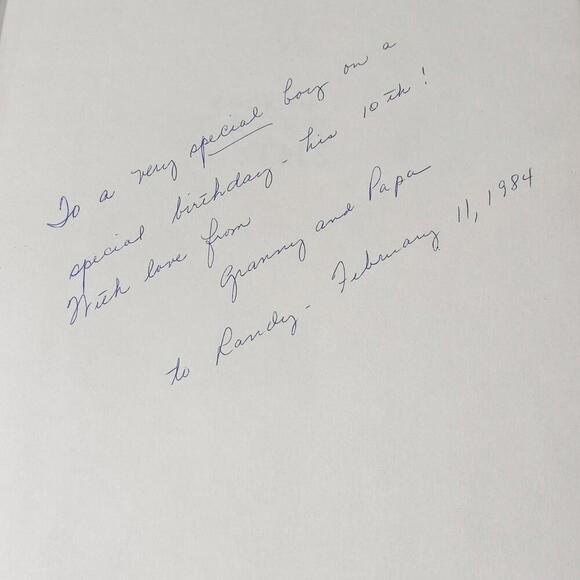 To a very special boy on a
special birthday - his 10th!
With love from
Granny and Papa
to Randy - February 11, 1984